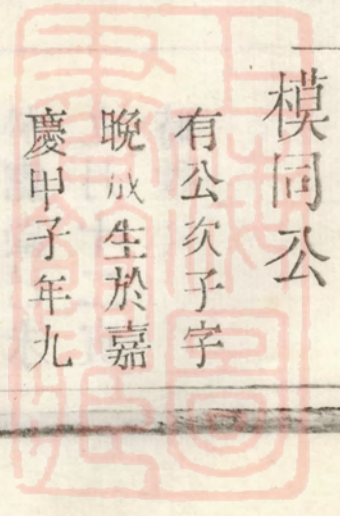 模同公
有公次子字
晚成生於嘉
慶甲子年九